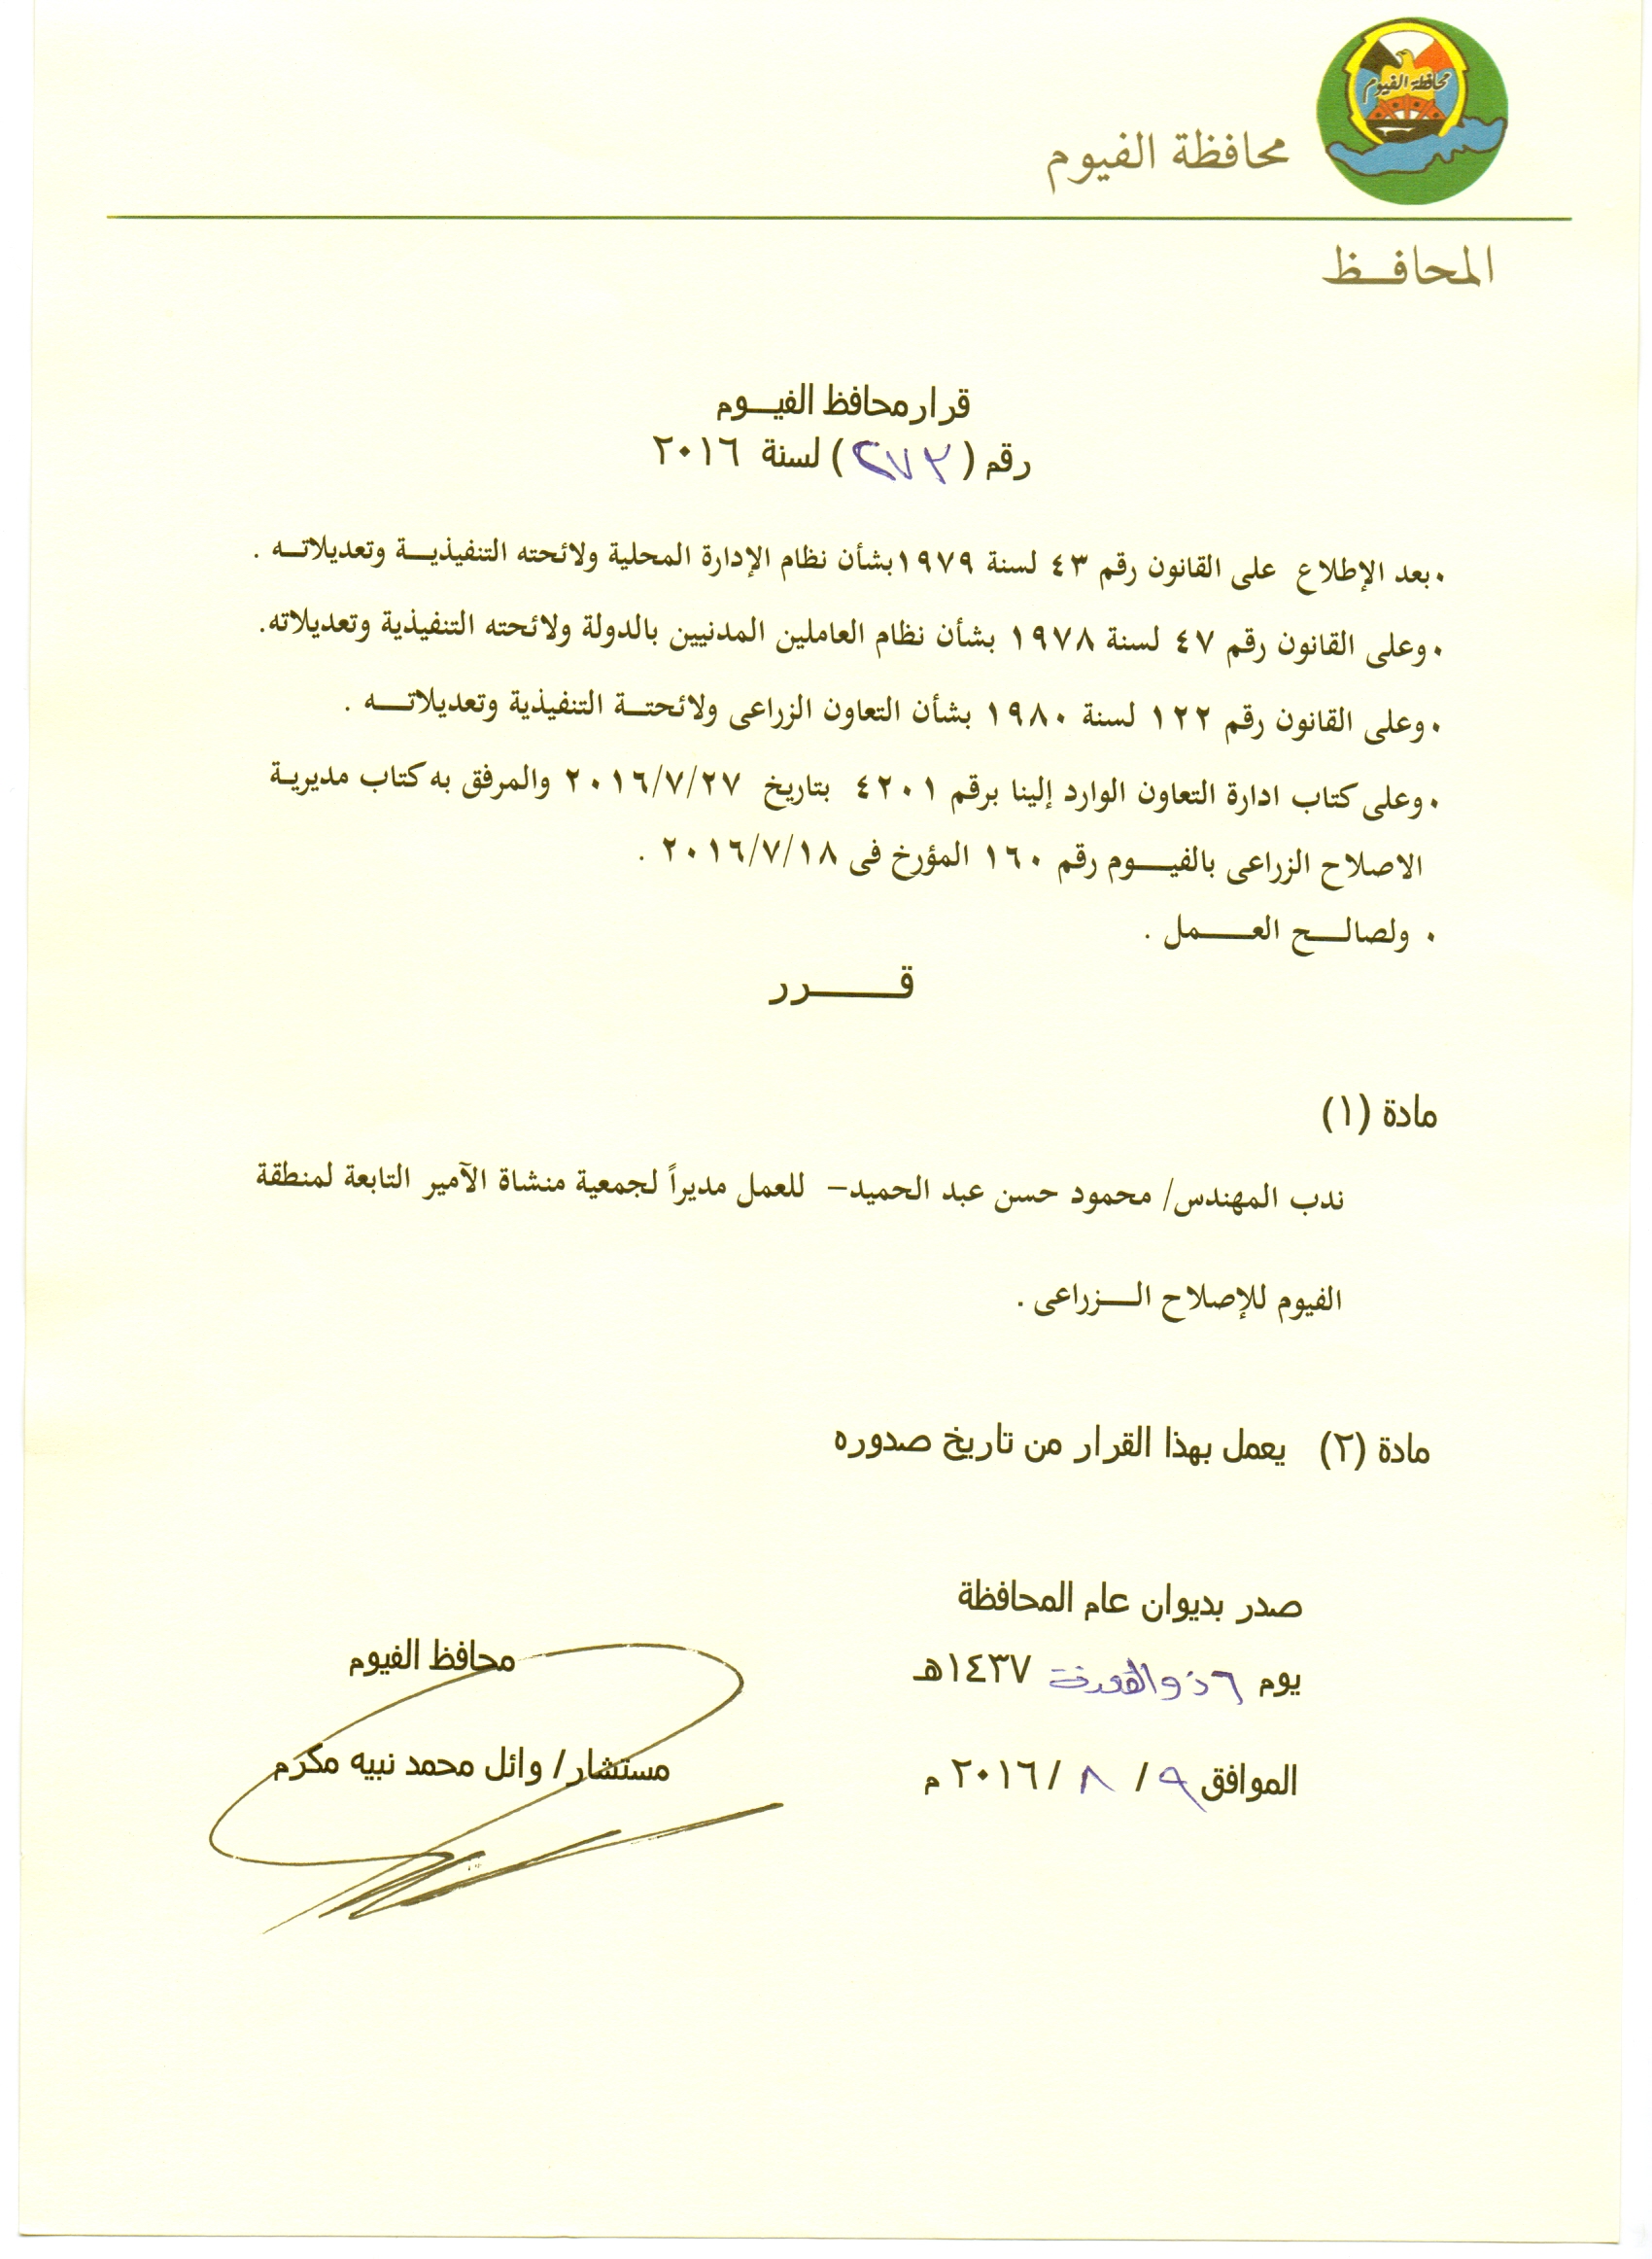 محافظة الفيوم
محافظة الفيوم
المحافــظ
قرار محافظ الفيــوم
رقم (٢٧٣) لسنة ٢٠١٦
• بعد الإطلاع على القانون رقم ٤٣ لسنة ١٩٧٩ بشأن نظام الإدارة المحلية ولائحته التنفيذيــة وتعديلاتــه .
• وعلى القانون رقم ٤٧ لسنة ١٩٧٨ بشأن نظام العاملين المدنيين بالدولة ولائحته التنفيذية وتعديلاته.
• وعلى القانون رقم ١٢٢ لسنة ١٩٨٠ بشأن التعاون الزراعى ولائحتــة التنفيذية وتعديلاتــــه .
• وعلى كتاب ادارة التعاون الوارد إلينا برقم ٤٢٠١ بتاريخ ٢٠١٦/٧/٢٧ والمرفق به كتاب مديريـة
الاصلاح الزراعى بالفيــــوم رقم ١٦٠ المؤرخ فى ٢٠١٦/٧/١٨ .
• ولصالــــح العــــــمل .
قـــــــرر
مادة (١)
ندب المهندس/ محمود حسن عبد الحميد– للعمل مديراً لجمعية منشاة الآمير التابعة لمنطقة
الفيوم للإصلاح الــــزراعى .
مادة (٢) يعمل بهذا القرار من تاريخ صدوره
صدر بديوان عام المحافظة
يوم ٦ ذو القعدة ١٤٣٧هـ
الموافق ٩ / ٨ / ٢٠١٦ م
محافظ الفيوم
مستشار/ وائل محمد نبيه مكرم